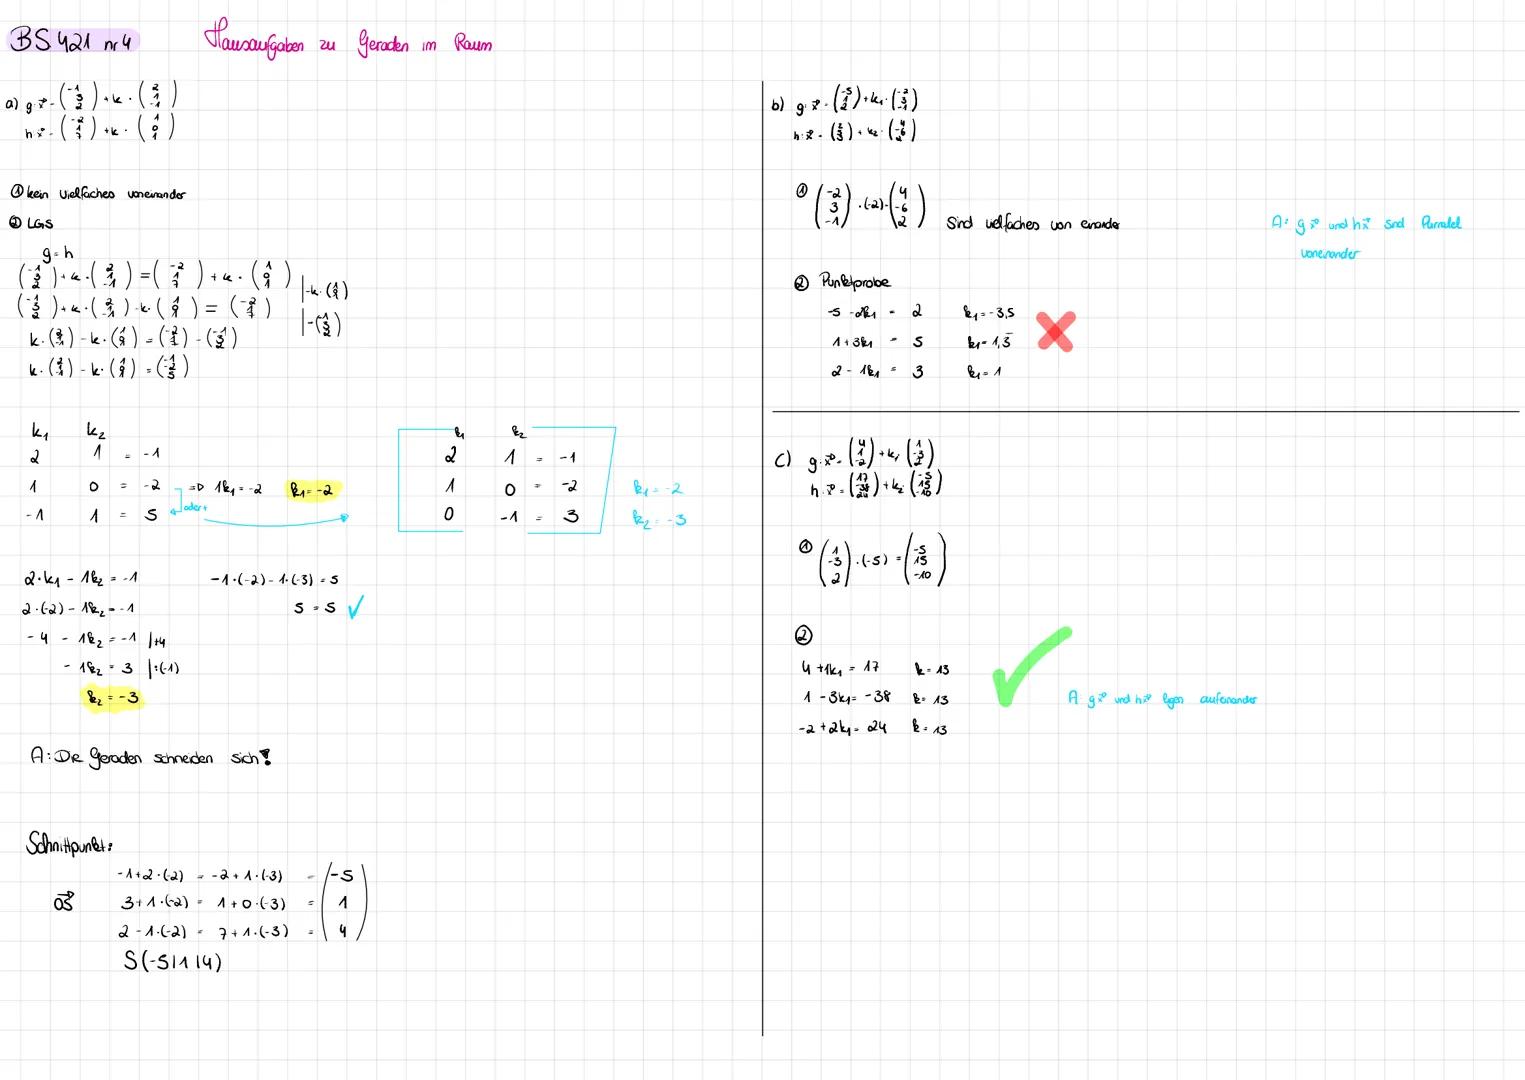 BS 421 nr 4 Hausaufgaben zu Geraden im Raum
a) g: x⃗ = (-1 3 2) + k · (2 1 -1)
h: x⃗ = (-2 1 7) + k · (1 0 1)
① kein Vielfaches voneinander
② LGS
g = h
(-1 3 2) + k · (2 1 -1) = (-2 1 7) + k · (1 0 1) |-k · (1 0 1)
(-1 3 2) + k · (2 1 -1) - k · (1 0 1) = (-2 1 7) |-(-1 3 2)
k · (2 1 -1) - k · (1 0 1) = (-2 1 7) - (-1 3 2)
k · (2 1 -1) - k · (1 0 1) = (-1 -2 5)
k1 k2
2 1 = -1
1 0 = -2 => 1k1 = -2 k1 = -2
-1 1 = 5 oder +
k1 k2
2 1 = -1
1 0 = -2 k1 = -2
0 -1 = 3 k2 = -3
2·k1 - 1k2 = -1 -1·(-2) - 1·(-3) = 5
2·(-2) - 1k2 = -1 5 = 5 ✓
-4 - 1k2 = -1 |+4
- 1k2 = 3 |:(-1)
k2 = -3
A: Die Geraden schneiden sich!
Schnittpunkt:
-1+2·(-2) = -2+1·(-3) = -5
OS⃗ 3+1·(-2) = 1+0·(-3) = 1
2-1·(-2) = 7+1·(-3) = 4
S(-5|1|4)
b) g: x⃗ = (-5 1 2) + k1 · (-2 3 -1)
h: x⃗ = (2 5 3) + k2 · (4 -6 2)
① (-2 3 -1) · (-2) = (4 -6 2) Sind vielfaches von einander
A: g x⃗ und h x⃗ sind Parralel
voneinander
② Punktprobe
-5 -2k1 = 2 k1 = -3,5
1+3k1 = 5 k1 = 1,3̅
2 - 1k1 = 3 k1 = 1
c) g: x⃗ = (4 1 -2) + k1 (1 -3 2)
h: x⃗ = (17 -38 24) + k2 (-5 15 -10)
① (1 -3 2) · (-5) = (-5 15 -10)
②
4 +1k1 = 17 k = 13
1 - 3k1 = -38 k = 13
-2 + 2k1 = 24 k = 13
A g x⃗ und h x⃗ ligen aufeinander